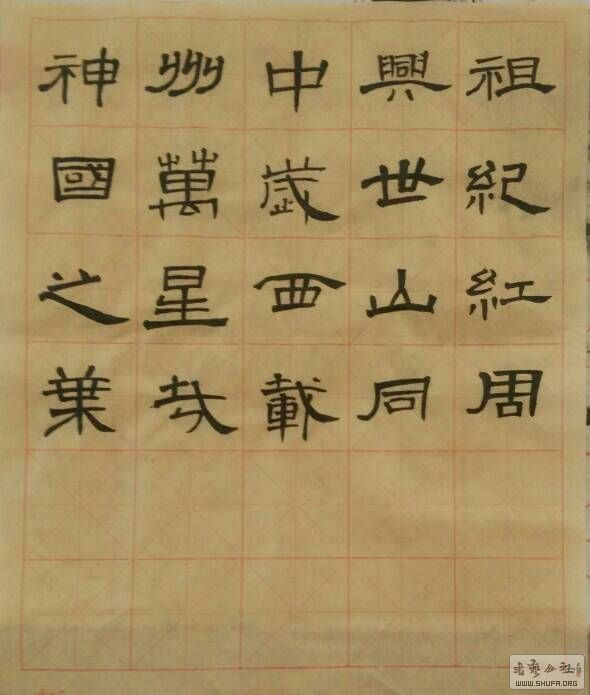 神州中興祖
國萬歲世紀
之星西山紅
葉載同周
書藝公社
WWW.SHUFA.ORG